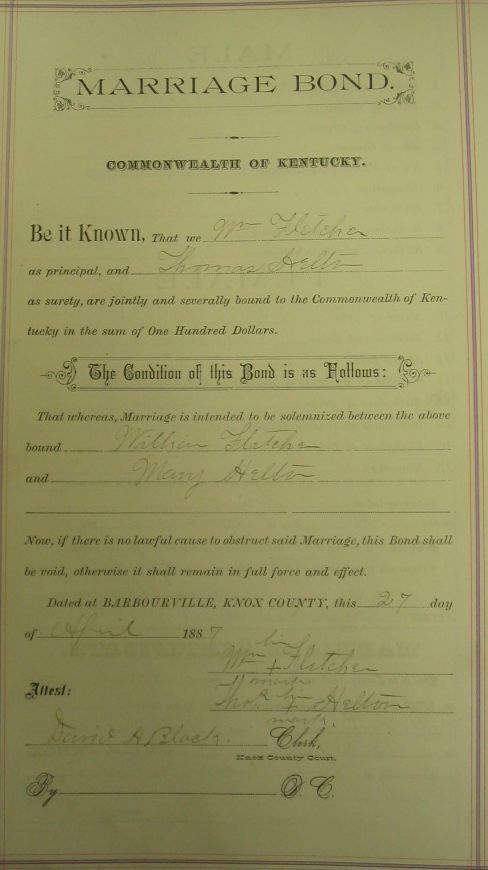 MARRIAGE BOND.
COMMONWEALTH OF KENTUCKY.
Be it Known, That we Wm Fletcher
as principal, and Thomas Helton
as surety, are jointly and severally bound to the Commonwealth of Ken-
tucky in the sum of One Hundred Dollars.
The Condition of this Bond is as Follows:
That whereas, Marriage is intended to be solemnized between the above
bound William Fletcher
and Mary Helton
Now, if there is no lawful cause to obstruct said Marriage, this Bond shall
be void, otherwise it shall remain in full force and effect.
Dated at BARBOURVILLE, KNOX COUNTY, this 27 day
of April 1887
his
Wm + Fletcher
mark
Attest: Thos his + Helton
mark.
David H Black. Clerk,
Knox County Court.
By D. C.